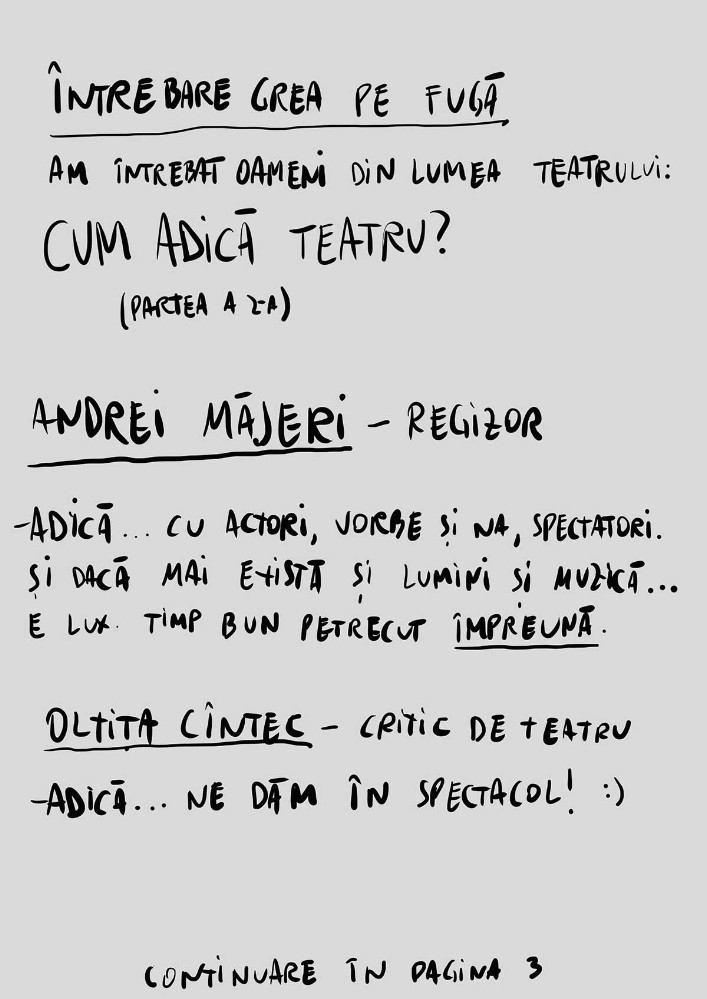 ÎNTREBARE GREA PE FUGĂ
AM ÎNTREBAT OAMENI DIN LUMEA TEATRULUI:
CUM ADICĂ TEATRU?
(PARTEA A 2-A)
ANDREI MĂJERI - REGIZOR
-ADICĂ... CU ACTORI, VORBE ȘI NA, SPECTATORI.
ȘI DACĂ MAI EXISTĂ ȘI LUMINI ȘI MUZICĂ...
E LUX. TIMP BUN PETRECUT ÎMPREUNĂ.
OLTIȚA CÎNTEC - CRITIC DE TEATRU
-ADICĂ... NE DĂM ÎN SPECTACOL! :)
CONTINUARE ÎN PAGINA 3